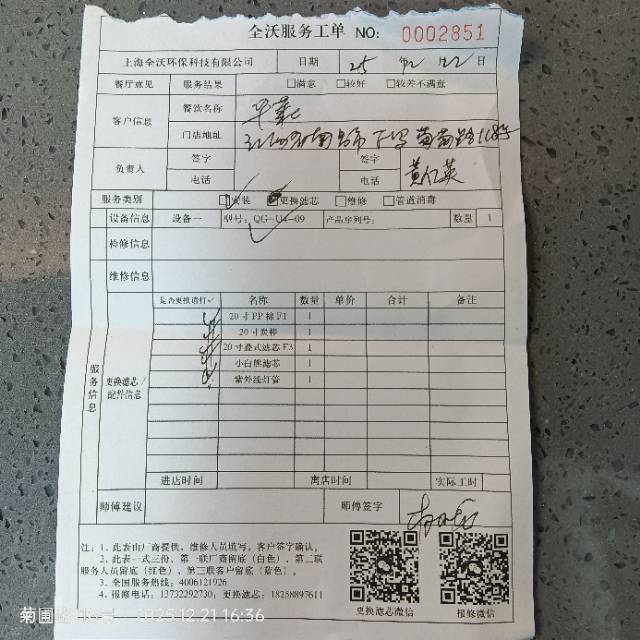 全沃服务工单 NO: 0002851
上海全沃环保科技有限公司 日期 25 年 12 月 22 日
餐厅意见 服务结果 □满意 □较好 □较差不满意
客户信息 餐饮名称
门店地址
负责人 签字 签字
电话 电话 黄仁英
服务类别 □安装 更换滤芯 □维修 □管道消毒
设备信息 设备一 型号: QG-U4-09 产品序列号: 数量 1
检修信息
维修信息
服务信息
更换滤芯/配件信息
是否更换请打✓ 名称 数量 单价 合计 备注
✓ 20寸PP棉F1 1
✓ 20寸炭棒 1
✓ 20寸叠式滤芯F3 1
✓ 小白熊滤芯 1
✓ 紫外线灯管 1
进店时间 离店时间 实际工时
师傅建议 师傅签字
注: 1. 此表由厂商提供, 维修人员填写, 客户签字确认。
2. 此表一式三份, 第一联厂商留底(白色), 第二联
服务人员留底(红色), 第三联客户留底(蓝色)。
3. 全国服务热线: 4006121926
4. 报修电话: 13732292730; 更换滤芯: 18258897611
更换滤芯微信 报修微信
2025.12.21 16:36